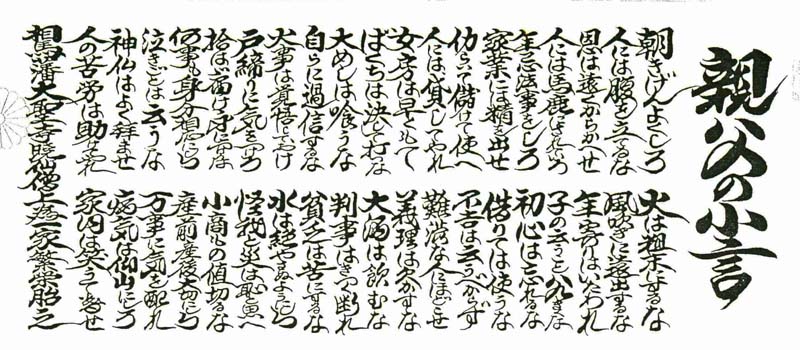 親父の小言
朝きげんよくしろ
人には腹を立てるな
恩は遠くからかへせ
人には馬鹿にされていろ
年忌法事をしろ
家業には精を出せ
仂らいて儲けて使へ
人には貸してやれ
女房は早くもて
ばくちは決して打な
大めしは喰うな
自らに過信するな
火事は覚悟しておけ
戸締りに気をつけろ
拾はば届け身につけるな
何事も身分相応にしろ
泣きごとは云うな
神仏はよく拝ませ
人の苦労は助けてやれ
火は粗末にするな
風吹きに遠出するな
年寄りはいたわれ
子の云うこと八九きくな
初心は忘れるな
借りては使うな
不吉は云うべからず
難渋な人にほどこせ
義理は欠かすな
大酒は飲むな
判事はきつく断れ
貧乏は苦にするな
水は絶やさぬようにしろ
怪我と災は恥と思へ
小商もの値切るな
産前産後大切にしろ
万事に気を配れ
病気は仰山にしろ
家内は笑うて暮せ
相馬藩大聖寺暁仙僧上 一家繁栄昭之